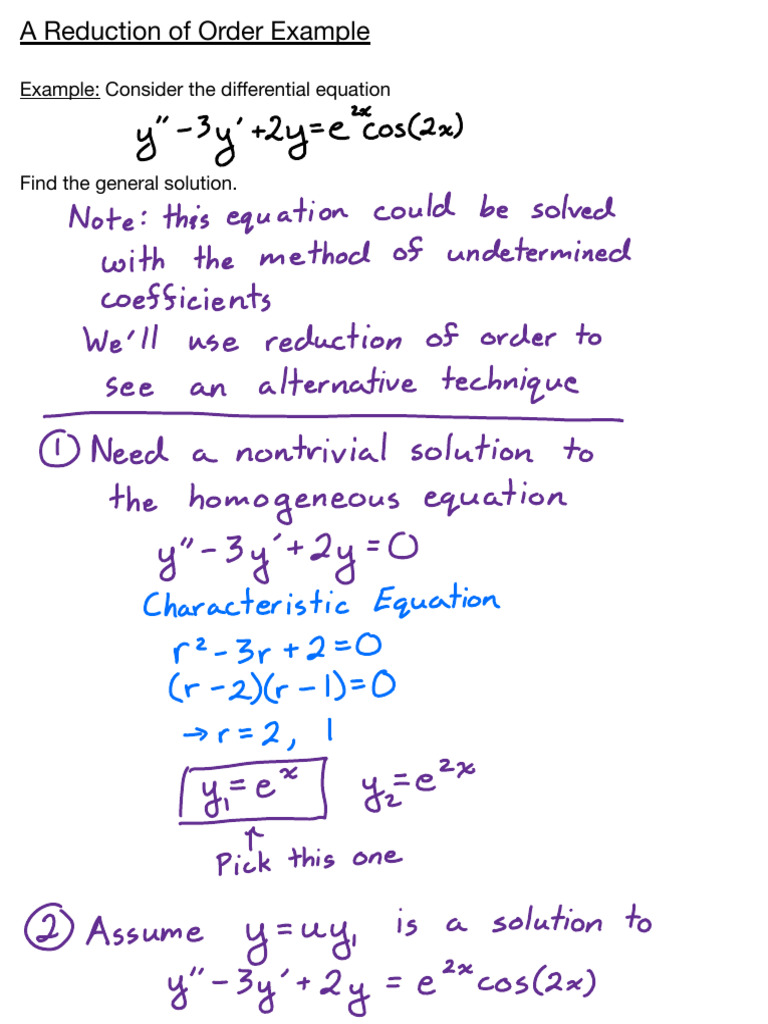 A Reduction of Order Example
Example: Consider the differential equation
y″ - 3y′ + 2y = e^{2x} cos(2x)
Find the general solution.
Note: this equation could be solved
with the method of undetermined
coefficients
We'll use reduction of order to
see an alternative technique
① Need a nontrivial solution to
the homogeneous equation
y″ - 3y′ + 2y = 0
Characteristic Equation
r² - 3r + 2 = 0
(r - 2)(r - 1) = 0
→ r = 2, 1
y₁ = e^x y₂ = e^{2x}
↑
Pick this one
② Assume y = uy₁ is a solution to
y″ - 3y′ + 2y = e^{2x} cos(2x)